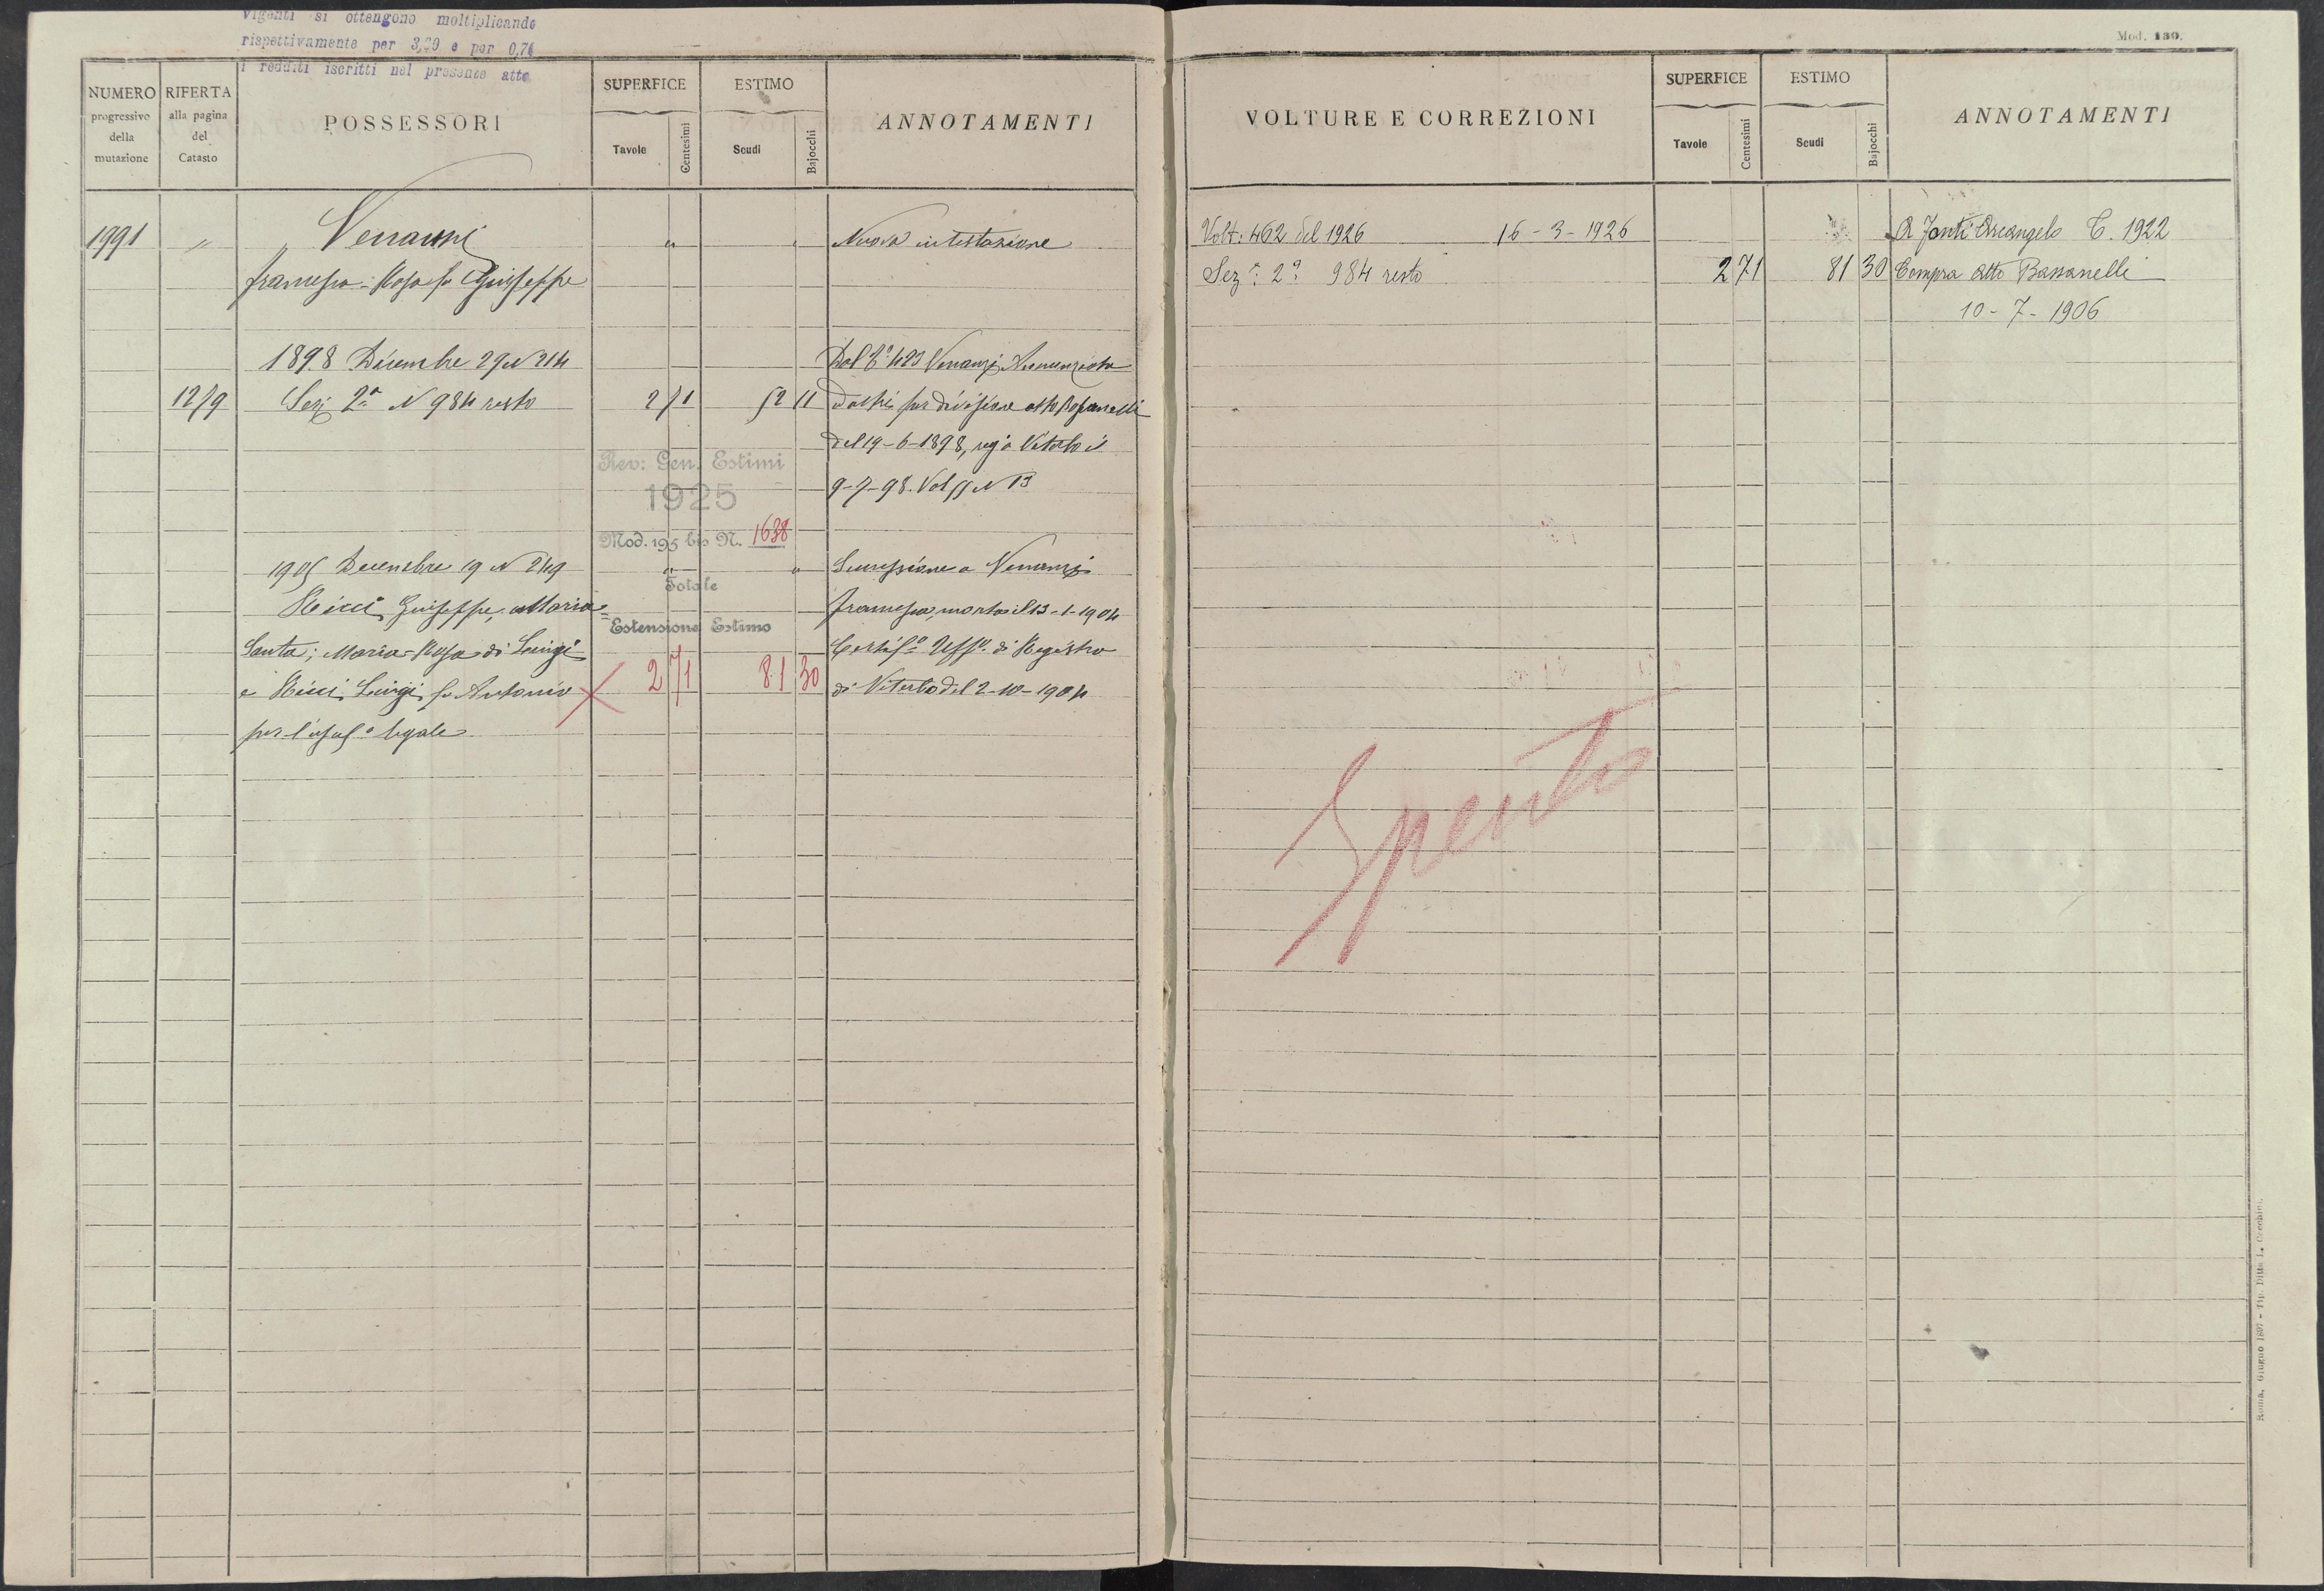 Viganti si ottengono moltiplicando
rispettivamente per 3,20 e per 0,76
i redditi iscritti nel presente atto
NUMERO progressivo della mutazione
RIFERTA alla pagina del Catasto
POSSESSORI
SUPERFICE
Tavole Centesimi
ESTIMO
Scudi Bajocchi
ANNOTAMENTI
1991 " " Venanzi " " Nuova intestazione
Francesca-Rosa fu Giuseppe
1898 Dicembre 29 N 214 Dal C° 423 Venanzi Nunziata
1279 Sezi 2ª N 984 resto 2 71 52 11 ed altri per divisione atto Bassanelli
del 19-6-1898, reg° a Viterbo il
9-7-98. Vol N 13
Rev: Gen. Estimi
1925
Mod. 195 bis N. 1638
1905 Decembre 19 N 249 " " Successione a Venanzi
Totale
Ricci Giuseppe, Maria= Francesca, morta il 13-1-1904
Estensione Estimo
Santa; Maria-Rosa di Luigi Certif° Uff° di Registro
e Ricci Luigi fu Antonio 2 71 81 30 di Viterbo del 2-10-1904
per l'usuf° legale
Mod. 130.
VOLTURE E CORREZIONI
SUPERFICE
Tavole Centesimi
ESTIMO
Scudi Bajocchi
ANNOTAMENTI
Volt: 462 del 1926 16-3-1926 A Fonti Arcangelo C. 1922
Sez: 2ª 984 resto 2 71 81 30 Compra Atto Bassanelli
10-7-1906
Spento
Roma, Giugno 1897 - Tip. Ditta L. Cecchini.